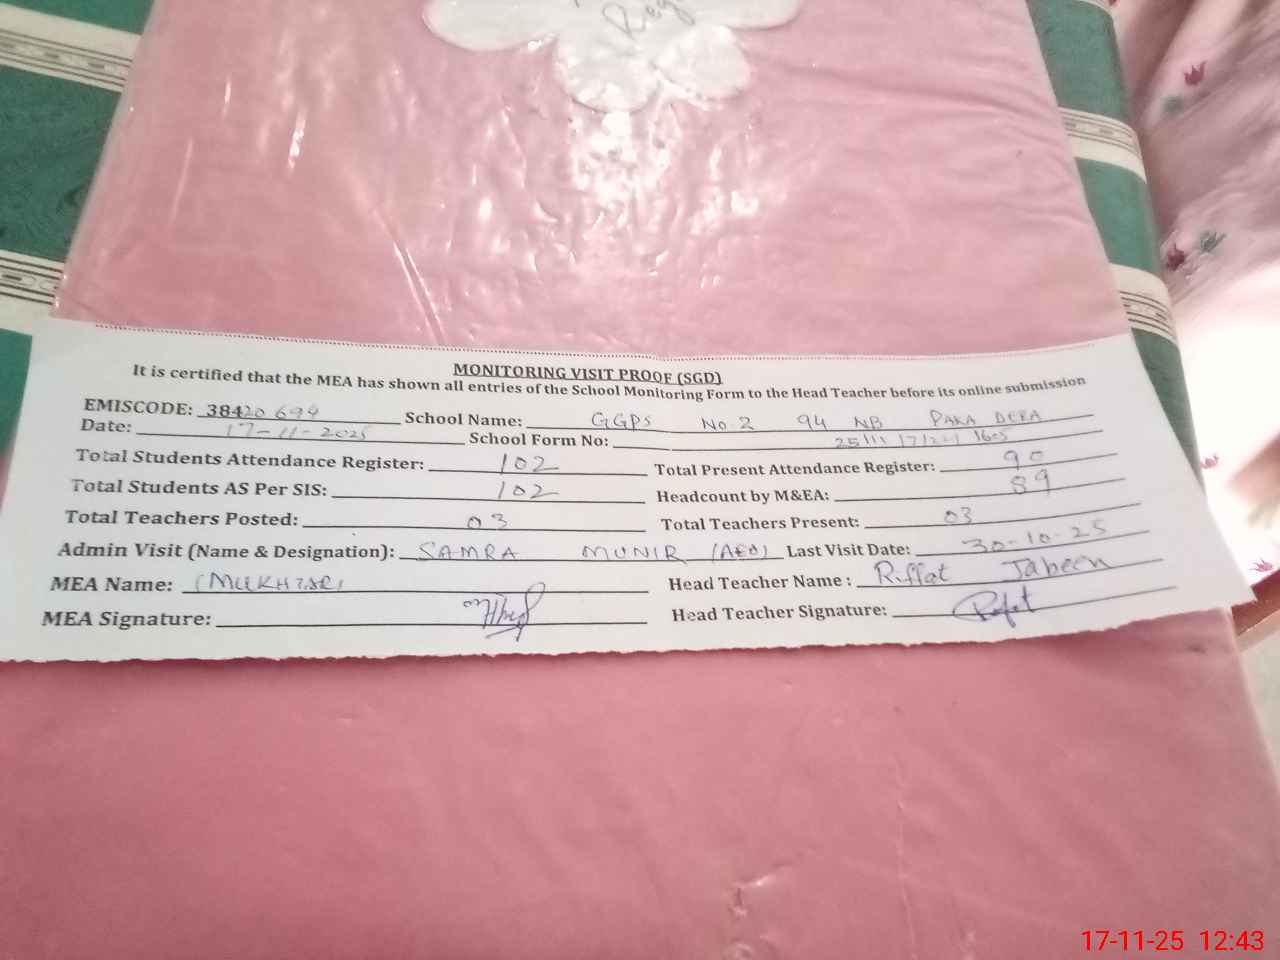 Reg
MONITORING VISIT PROOF (SGD)
It is certified that the MEA has shown all entries of the School Monitoring Form to the Head Teacher before its online submission
EMISCODE: 38420694 School Name: GGPS No.2 94 NB PAKA DERA
Date: 17-11-2025 School Form No:
Total Students Attendance Register: 102 Total Present Attendance Register: 90
Total Students AS Per SIS: 102 Headcount by M&EA: 89
Total Teachers Posted: 03 Total Teachers Present: 03
Admin Visit (Name & Designation): SAMRA MUNIR (AEO) Last Visit Date: 30-10-25
MEA Name: Head Teacher Name : Riffat Jabeen
MEA Signature: Head Teacher Signature:
17-11-25 12:43